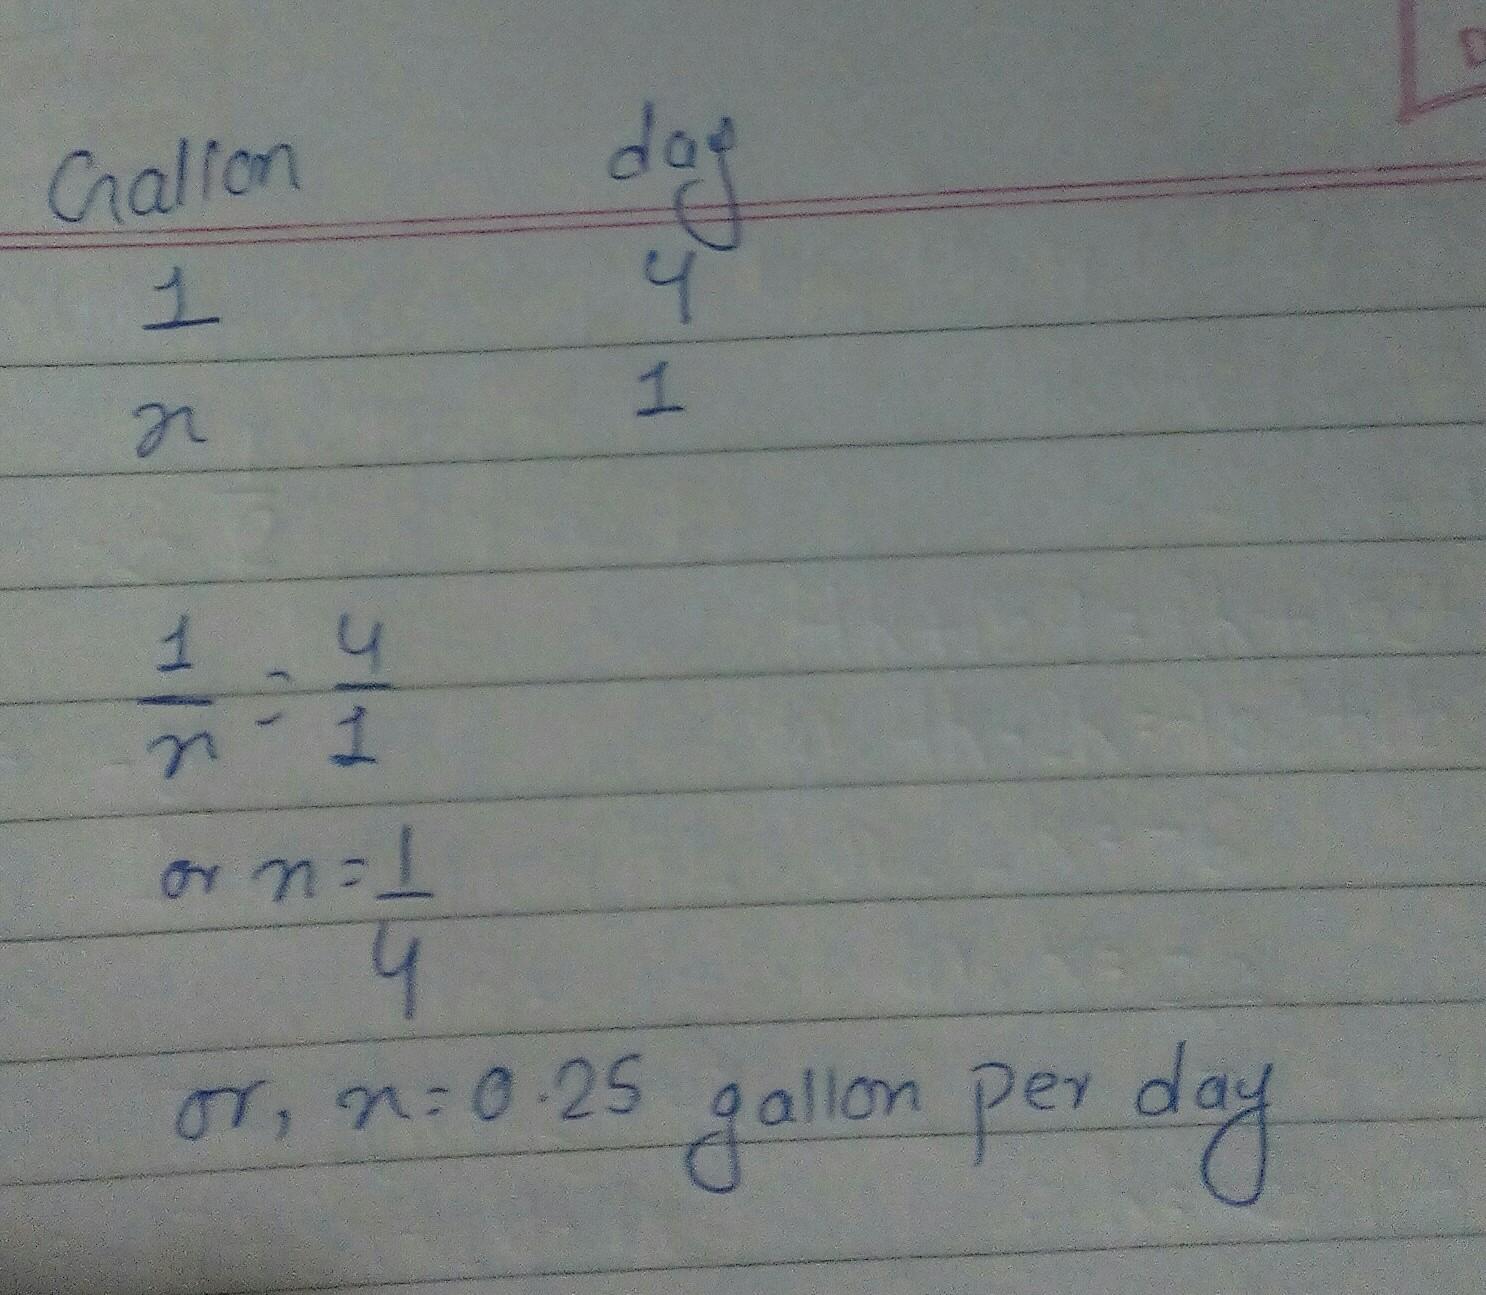 Gallon day
1 4
x 1
1/x = 4/1
or x = 1/4
or, x = 0.25 gallon per day